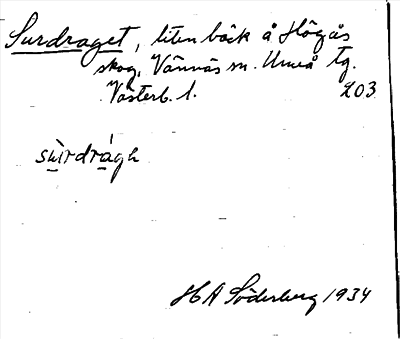 Surdraget, liten bäck å Högås
skog, Vännäs sn. Umeå tg.
Västerb. l. 203
sùrdrágh
HA Söderberg 1934